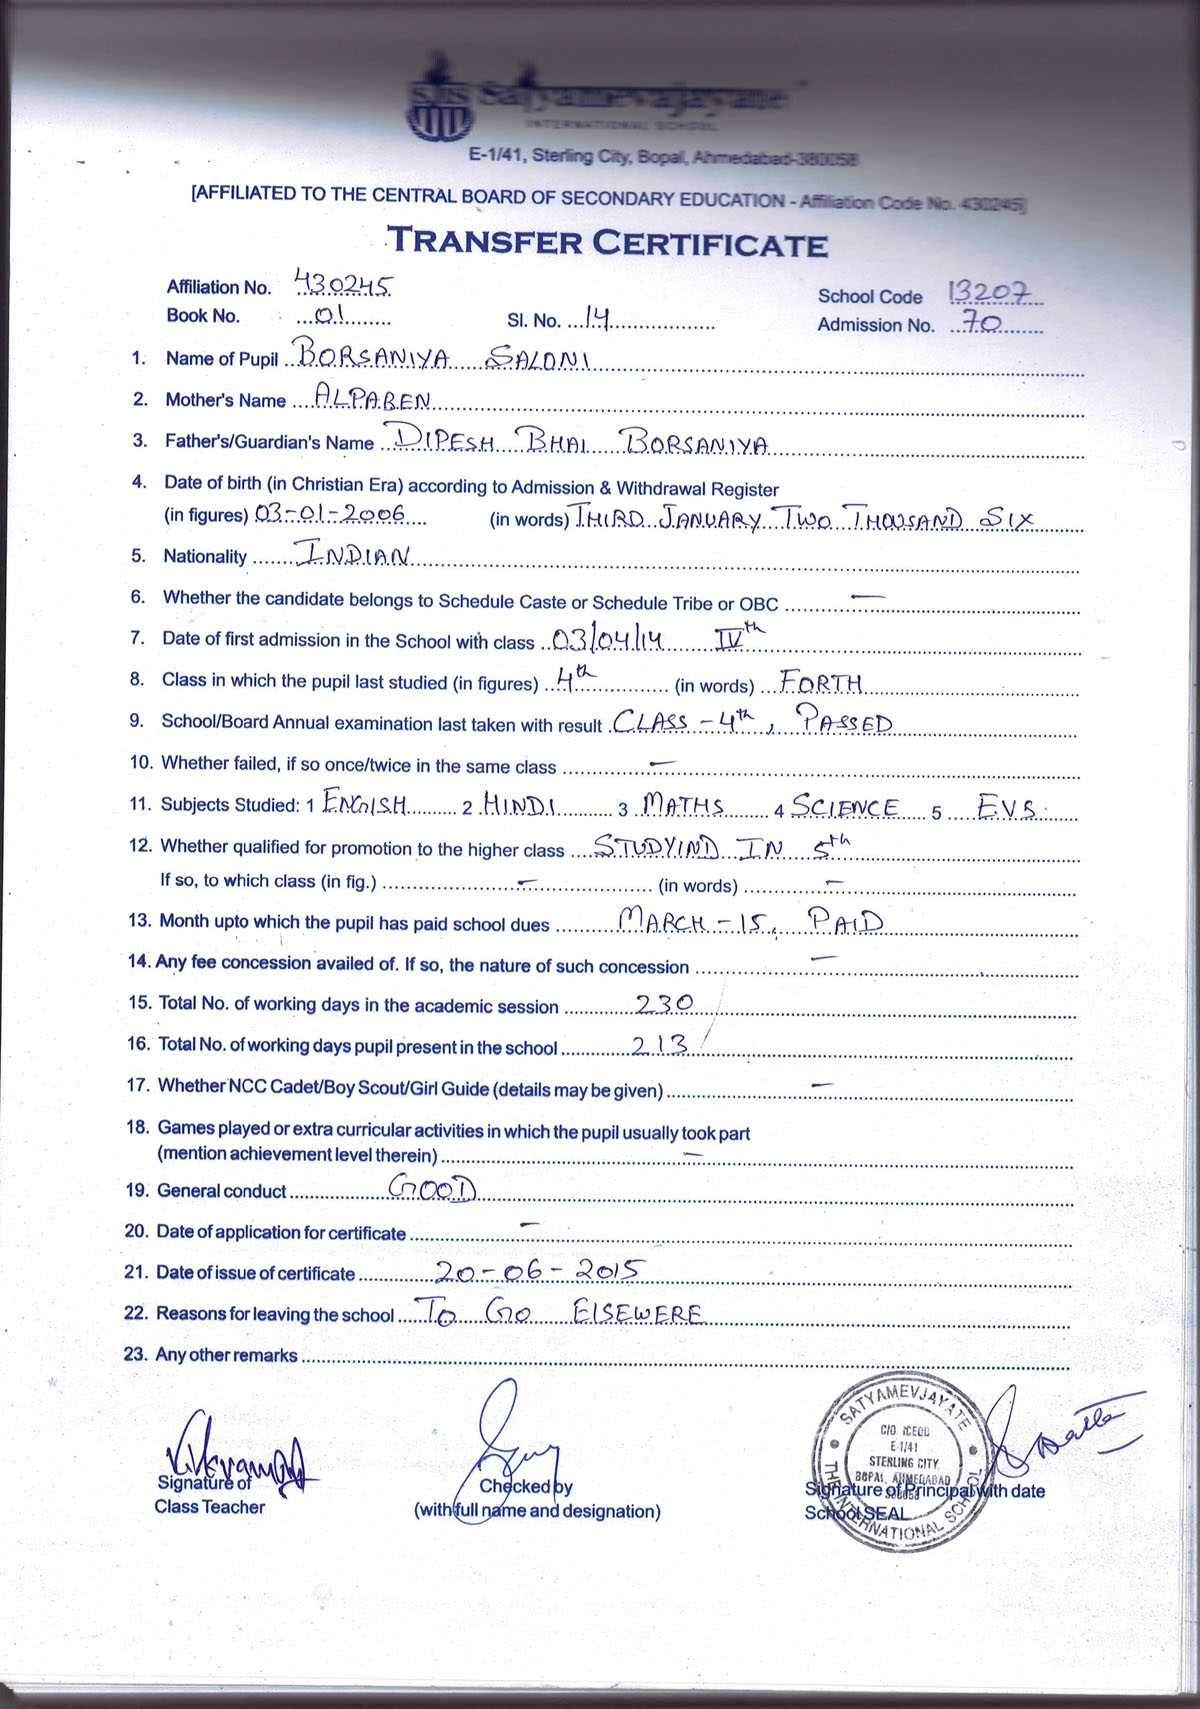 SIS Satyamevajayate
INTERNATIONAL SCHOOL
E-1/41, Sterling City, Bopal, Ahmedabad-380058
[AFFILIATED TO THE CENTRAL BOARD OF SECONDARY EDUCATION - Affiliation Code No. 430245]
TRANSFER CERTIFICATE
Affiliation No. 430245 School Code 13207
Book No. 01 Sl. No. 14 Admission No. 70
1. Name of Pupil BORSANIYA SALONI
2. Mother's Name ALPABEN
3. Father's/Guardian's Name DIPESH BHAI BORSANIYA
4. Date of birth (in Christian Era) according to Admission & Withdrawal Register
(in figures) 03-01-2006 (in words) THIRD JANUARY TWO THOUSAND SIX
5. Nationality INDIAN
6. Whether the candidate belongs to Schedule Caste or Schedule Tribe or OBC —
7. Date of first admission in the School with class 03/04/14 IVth
8. Class in which the pupil last studied (in figures) 4th (in words) FORTH
9. School/Board Annual examination last taken with result CLASS - 4th, PASSED
10. Whether failed, if so once/twice in the same class —
11. Subjects Studied: 1 ENGlISH 2 HINDI 3 MATHS 4 SCIENCE 5 EVS.
12. Whether qualified for promotion to the higher class STUDYIND IN 5th
If so, to which class (in fig.) — (in words) —
13. Month upto which the pupil has paid school dues MARCH - 15, PAID
14. Any fee concession availed of. If so, the nature of such concession —
15. Total No. of working days in the academic session 230
16. Total No. of working days pupil present in the school 213
17. Whether NCC Cadet/Boy Scout/Girl Guide (details may be given) —
18. Games played or extra curricular activities in which the pupil usually took part
(mention achievement level therein) —
19. General conduct GOOD
20. Date of application for certificate —
21. Date of issue of certificate 20-06-2015
22. Reasons for leaving the school TO GO ElSEWERE
23. Any other remarks
SATYAMEVJAYATE
THE INTERNATIONAL SCHOOL
C/O. ICEOD
E-1/41
STERLING CITY,
BOPAL, AHMEDABAD
380058
Signature of
Class Teacher
Checked by
(with full name and designation)
Signature of Principal with date
School SEAL